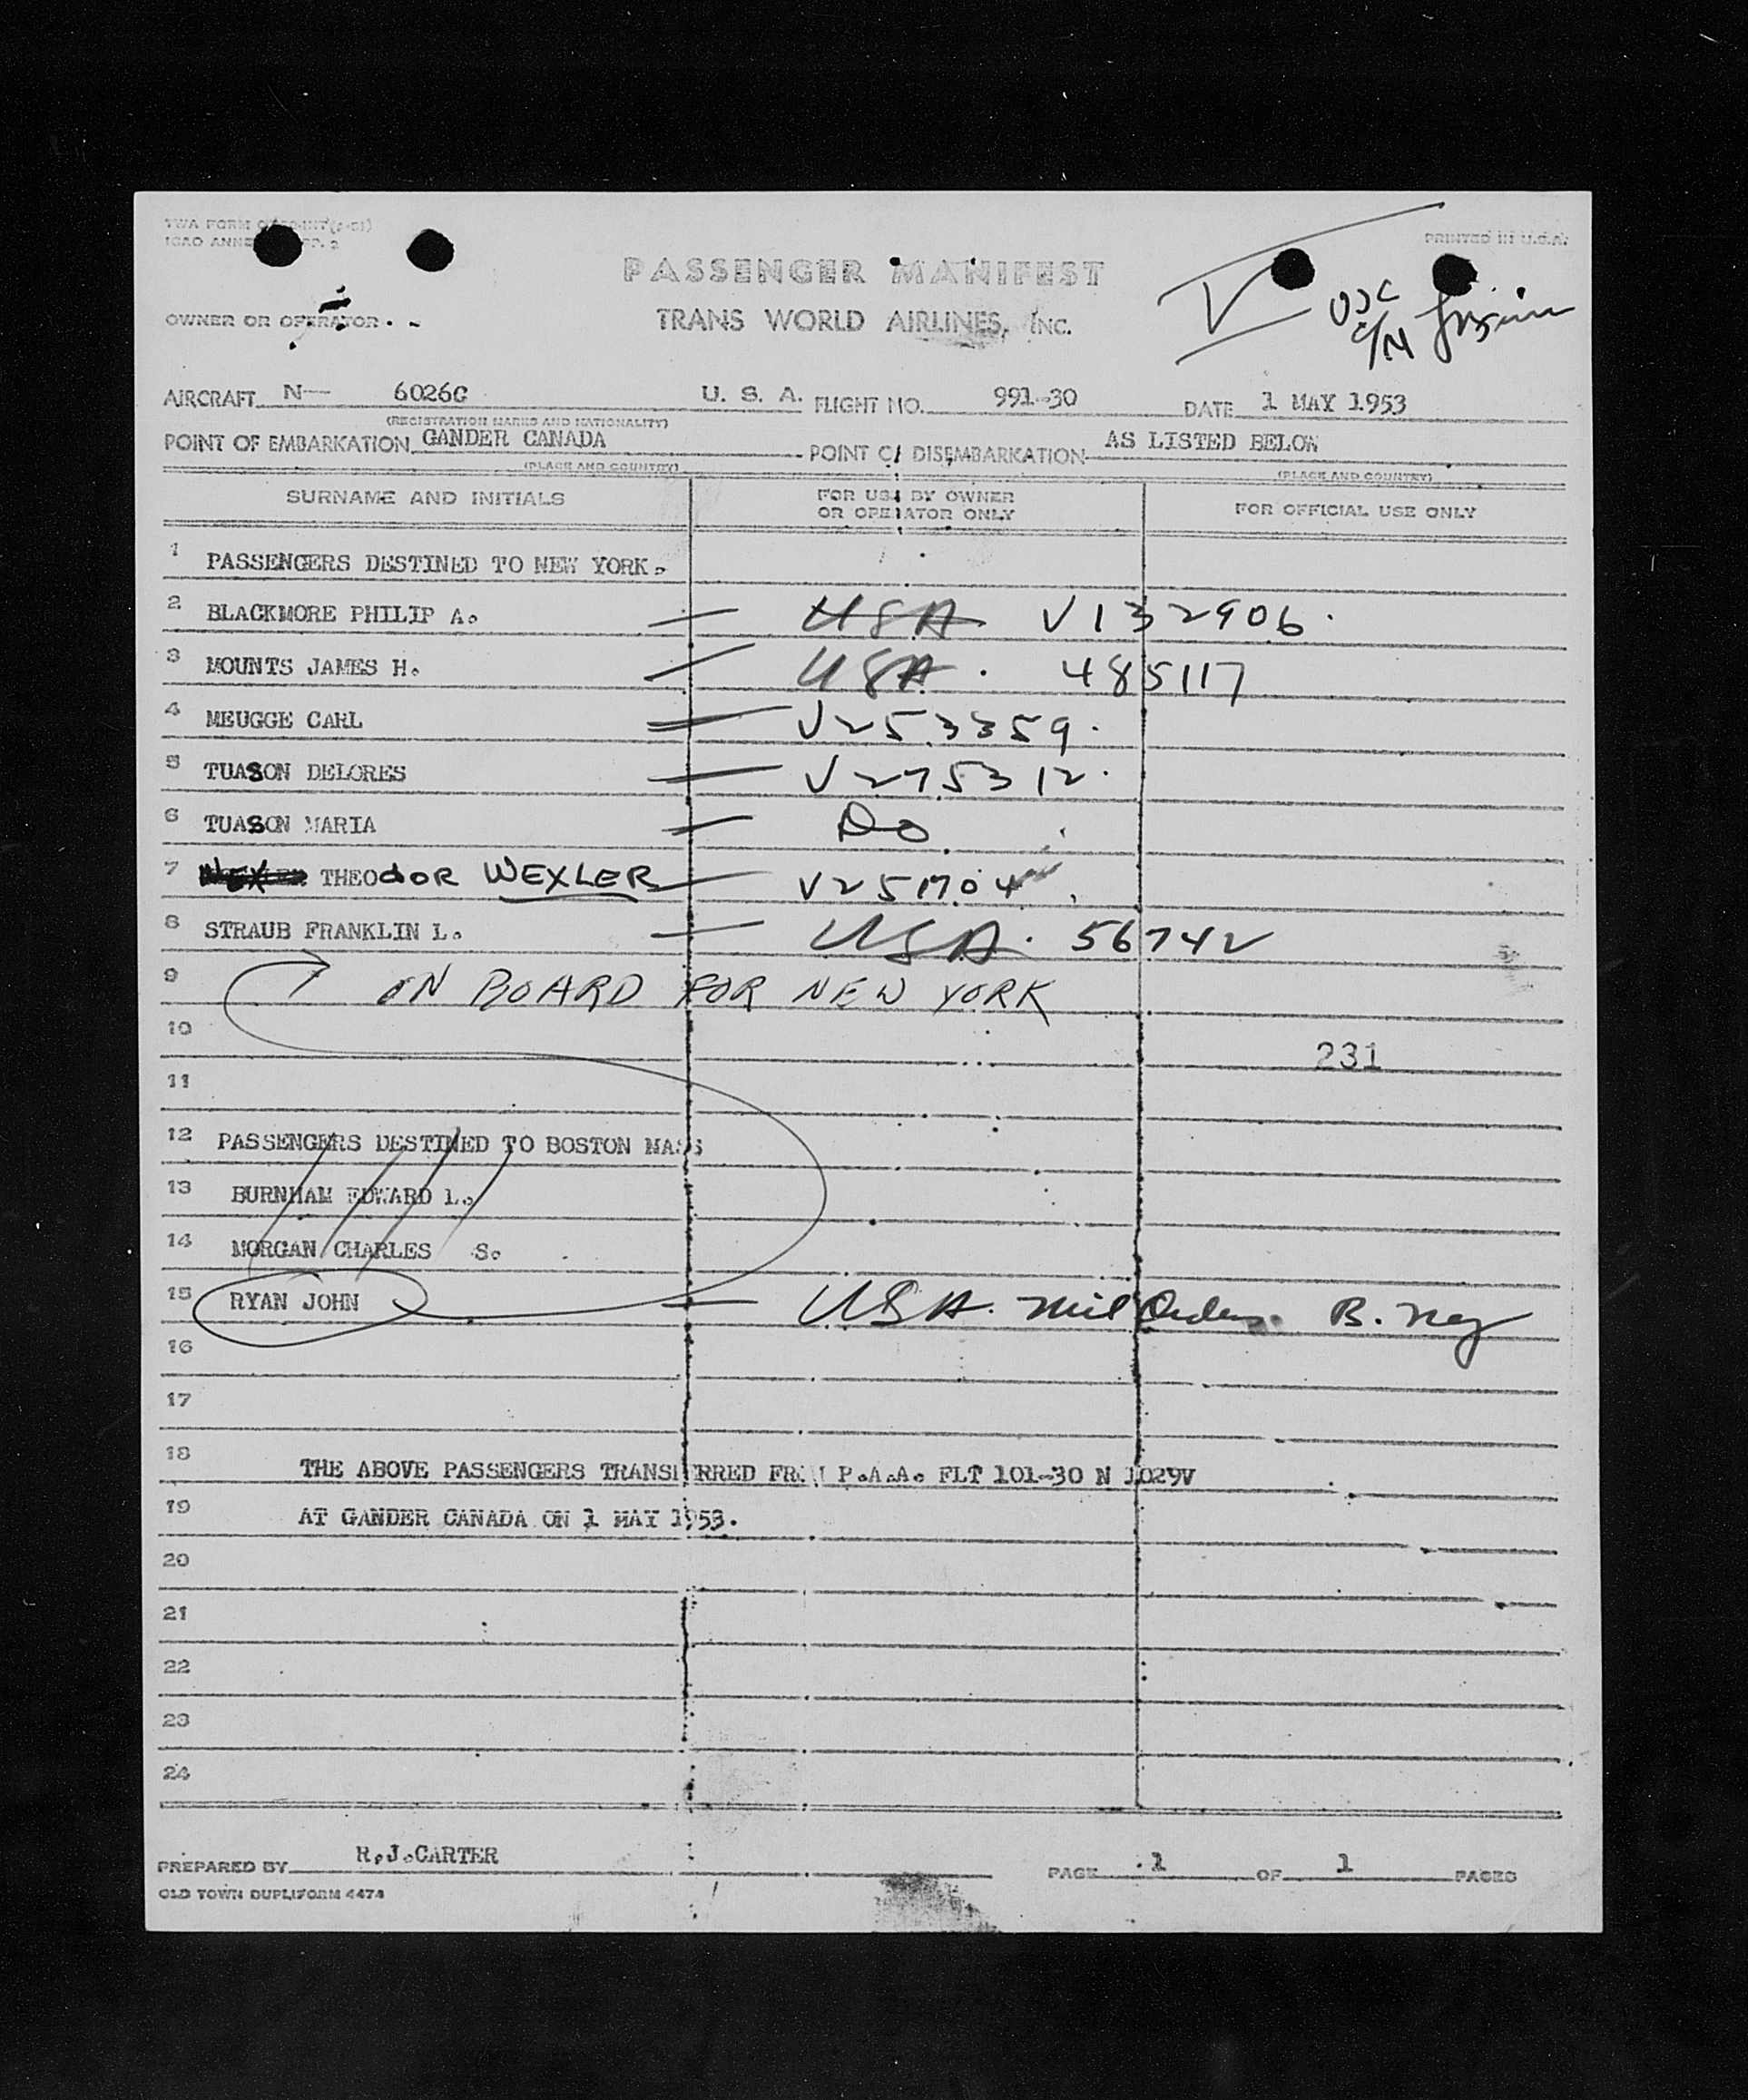 TWA FORM
ICAO ANNE
PRINTED IN U.S.A.
PASSENGER MANIFEST
OWNER OR OPERATOR
TRANS WORLD AIRLINES, INC.
AIRCRAFT N— 6026C U. S. A. FLIGHT NO. 991-30 DATE 1 MAY 1953
(REGISTRATION MARKS AND NATIONALITY)
POINT OF EMBARKATION GANDER CANADA POINT OF DISEMBARKATION AS LISTED BELOW
(PLACE AND COUNTRY) (PLACE AND COUNTRY)
SURNAME AND INITIALS FOR USE BY OWNER OR OPERATOR ONLY FOR OFFICIAL USE ONLY
1 PASSENGERS DESTINED TO NEW YORK.
2 BLACKMORE PHILIP A. — USA V132906.
3 MOUNTS JAMES H. — USA. 485117
4 MEUGGE CARL — V253359.
5 TUASON DELORES — V275312.
6 TUASON MARIA — DO
7 THEODOR WEXLER — V251704
8 STRAUB FRANKLIN L. — USA. 56742
9 ON BOARD FOR NEW YORK
10
231
11
12 PASSENGERS DESTINED TO BOSTON MASS
13 BURNHAM EDWARD L.
14 MORGAN CHARLES S.
15 RYAN JOHN — USA. Mil Orders. B. Neg
16
17
18 THE ABOVE PASSENGERS TRANSFERRED FROM P.A.A. FLT 101-30 N 1029V
19 AT GANDER CANADA ON 1 MAY 1953.
20
21
22
23
24
PREPARED BY R.J.CARTER PAGE 1 OF 1 PAGES
OLD TOWN DUPLIFORM 4474